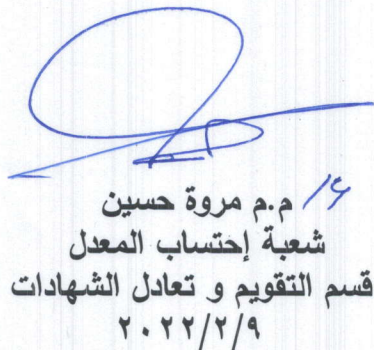 م.م مروة حسين
شعبة إحتساب المعدل
قسم التقويم و تعادل الشهادات
٢٠٢٢/٢/٩